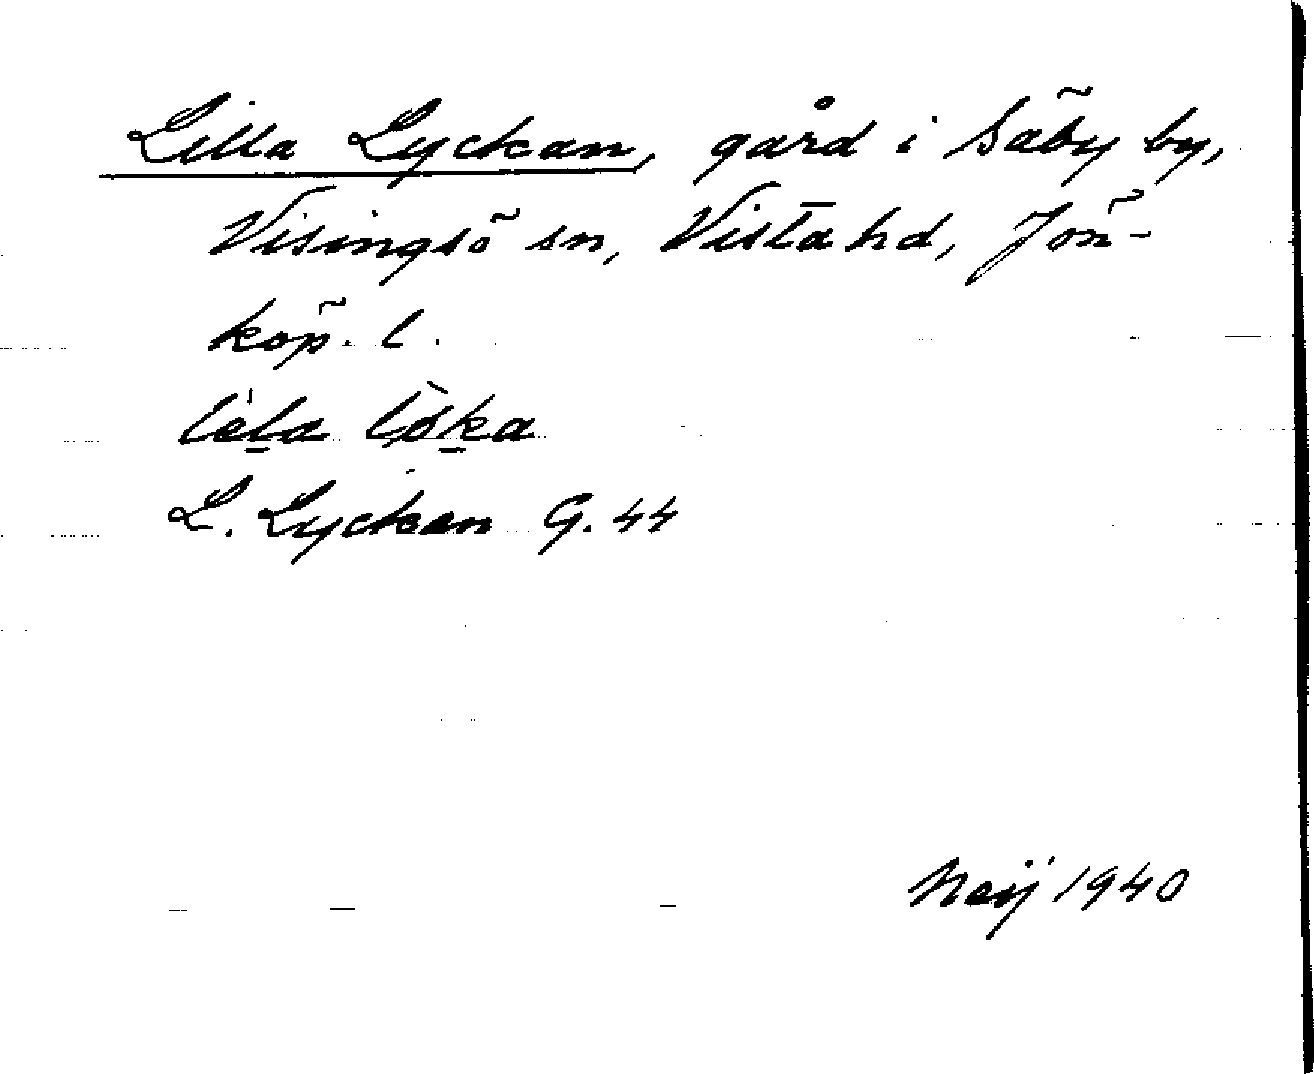 Lilla Lyckan, gård i Säby by,
Visingsö sn, Vista hd, Jön-
köp. l.
L. Lyckan G. 44
Neij 1940